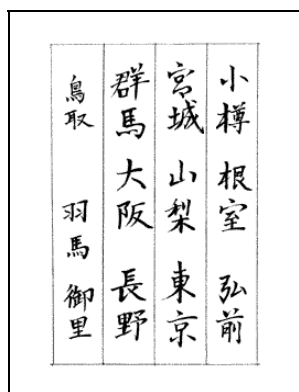 小樽 根室 弘前
宮城 山梨 東京
群馬 大阪 長野
鳥取 羽馬 御里